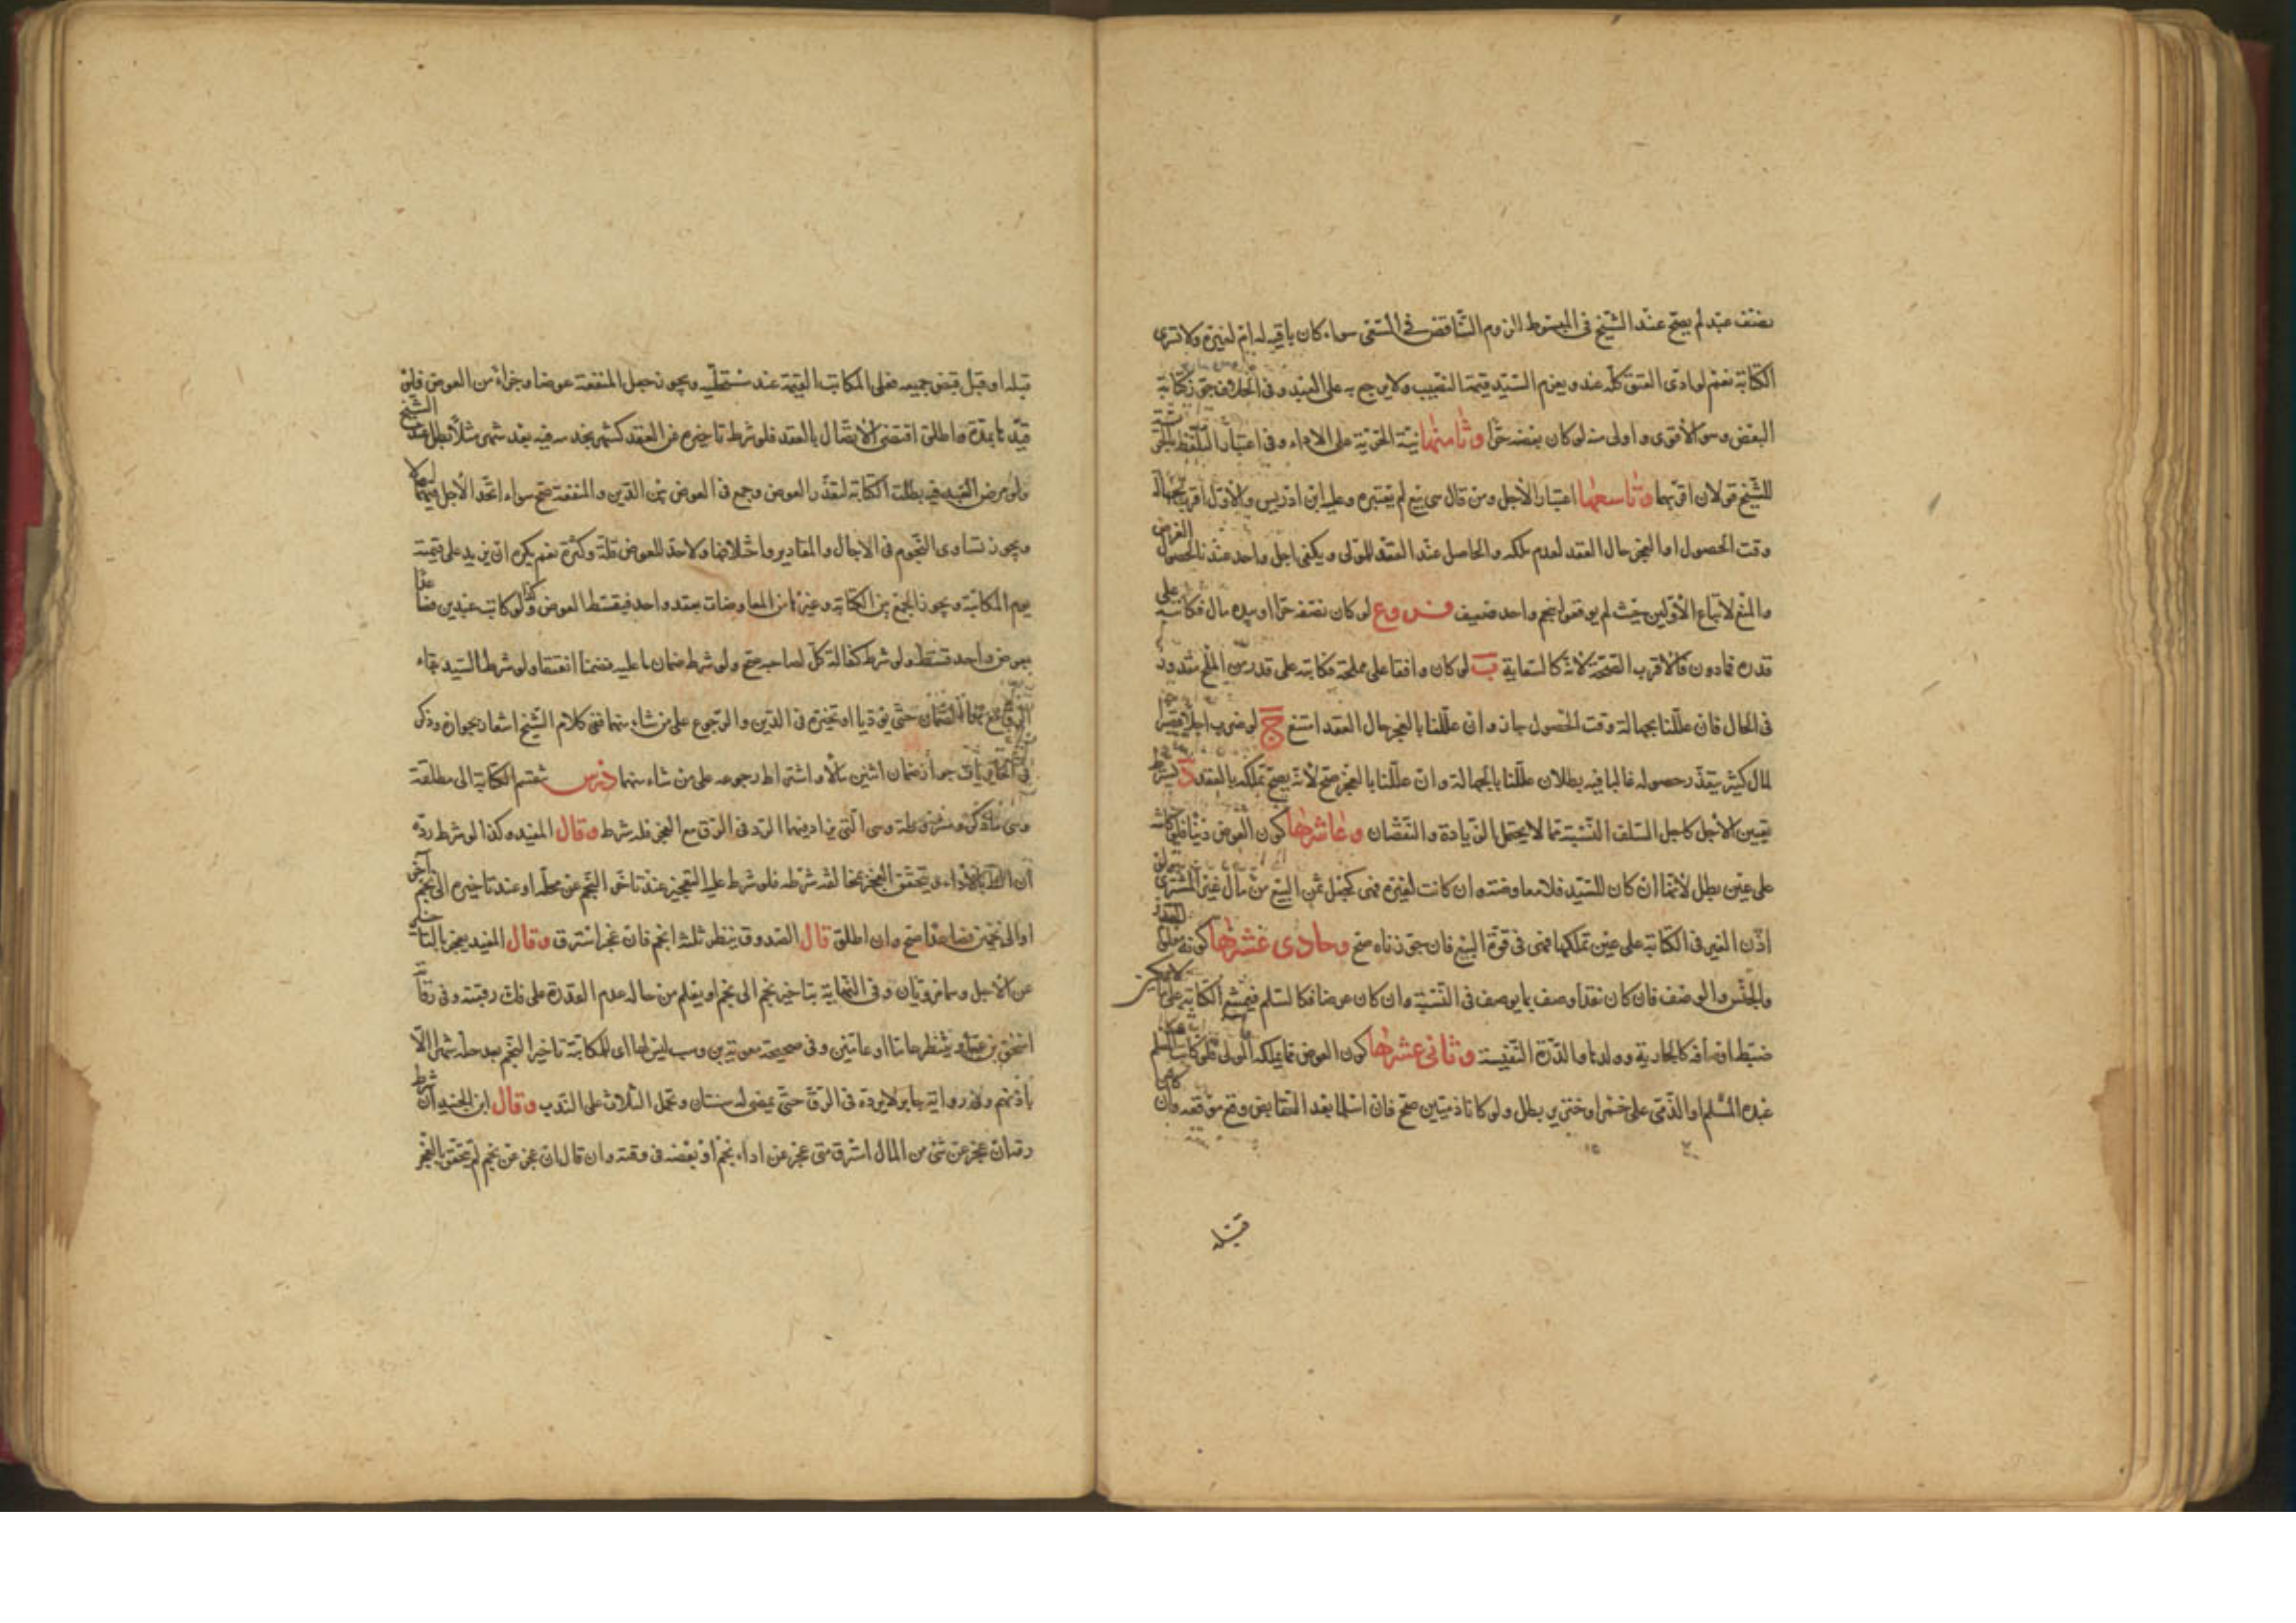 نصف عبد لم يصح عند الشيخ في المبسوط للزوم التناقض في السعي سواء كان باقيه له ام لغيره ولا تسري
الكتابة نعم لو ادى العتق كله عنده ويغرم السيد قيمة النصيب ولا يرجع به على العبد وفي الخلاف جوز كتابة
البعض وهو الأقوى واولى منه لو كان بعضه حرا وثامنها نية الحرية على الاداء وفي اعتبار التلفظ
للشيخ قولان اقربهما وتاسعها اعتبار الأجل ومن قال هي بيع لم يعتبره وعليه ابن ادريس والأول اقرب لجهالة
وقت الحصول او العجز حال العقد لعدم ملكه والحاصل عند العقد للمولى ويكفي اجل واحد عندنا لحصول الغرض
والمنع لاتباع الأولين حيث لم يوقعوا بنجم واحد ضعيف فروع لو كان نصفه حرا او بيده مال فكاتبه على
قدره فما دون فالاقرب الصحة لانه كالسعاية ب لو كان واقفا على مملحة فكاتبه على قدر من الملح
في الحال فان عللنا بجهالة وقت الحصول جاز وان عللنا بالعجز حال العقد امتنع ج لو ضرب اجلا قصيرا
لمال كثير يتعذر حصوله غالبا فيه بطلان عللنا بالجهالة وان عللنا بالعجز صح لأنه يصح تملكه بالعقد د يشترط
تعيين الأجل كاجل السلف النسيئة مما لا يحتمل الزيادة والنقصان وعاشرها كون العوض دينا فلو كاتبه
على عين بطل لأنها ان كان للسيد فلا معاوضة وان كانت لغيره فهي كجعل ثمن البيع من مال غير المشتري
اذن الغير في الكتابة على عين تملكها فهي في قوة البيع فان جوزناه صح وحادي عشرها كونه معلوم القدر
والجنس والوصف فان كان نقدا وصف بما يوصف في النسيئة وان كان عرضا فكالسلم فيمتنع الكتابة على ما لا يمكن
ضبط اوصافه كالجارية وولدها والدرة النفيسة وثاني عشرها كون العوض مما يملكه المولى فلو كاتب المسلم
عبده المسلم او الذمي على خمر او خنزير بطل ولو كانا ذميين صح فان اسلما بعد التقابض وقع موقعه وان كان
قبله
قبله او قبل قبض جميعه فعلى المكاتب القيمة عند مستحليه ويجوز جعل المنفعة عوضا وجزاء من العوض فلو
قيدها بمدة واطلق اقتضى الاتصال بالعقد فلو شرط تأخيره عن العقد كشهر بخدمه فيه بعد شهر مثلا بطل عند الشيخ
ولو مرض العبد فيه بطلت الكتابة لتعذر العوض وجمع في العوض بين الدين والمنفعة صح سواء اتحد الأجل فيهما او لا
ويجوز تساوي النجوم في الاجال والمقادير واختلافها ولا حد للعوض قلة وكثرة نعم يكره ان يزيد على قيمته
يوم المكاتبة ويجوز الجمع بين الكتابة وغيرها من المعاوضات بعقد واحد فيقسط العوض وكذا لو كاتب عبدين فصاعدا
بعوض واحد قسط ولو شرط كفالة كل لصاحبه صح ولو شرط ضمان ما عليه فضمنا انعتقا ولو شرط السيد بقاء
الرق مع هذا الضمان حتى يؤديا او تخييره في الدين والرجوع على من شاء منهما ففي كلام الشيخ اشعار بجوازه وذكر
في جواز ضمان اثنين مالا واشتراط رجوعه على من شاء منهما درس تنقسم الكتابة الى مطلقة
وهي ما ذكر ومشروطة وهي التي يزاد فيها الرد في الرق مع العجز فله شرط وقال المفيد وكذا لو شرط رده
ان بالاداء ويتحقق العجز بمخالفة شرطه فلو شرط عليه التعجيز عند تأخر النجم عن محله او عند تاخيره الى نجم آخر
او الى نجمين فصاعدا صح وان اطلق قال الصدوق ينظر ثلثة انجم فان عجز استرق وقال المفيد يعجز بالتأخير
عن الأجل وهما مرويان وفي النهاية بتاخير نجم الى نجم او يعلم من حاله عدم القدرة على فك رقبته وفي رواية
اسحق بن عمار ينتظر عاما او عامين وفي صحيحة معوية بن وهب ليس لها اى للمكاتبة تاخير النجم بعد حله شهرا الا
باذنهم وفي رواية جابر لا يرده في الرق حتى يمضي له سنتان وتحمل الثلاث على الندب وقال ابن الجنيد ان شرط
رقه ان عجز عن شئ من المال استرق متى عجز عن اداء نجم او بعضه في وقته وان قال ان عجز عن نجم لم يتحقق بالعجز